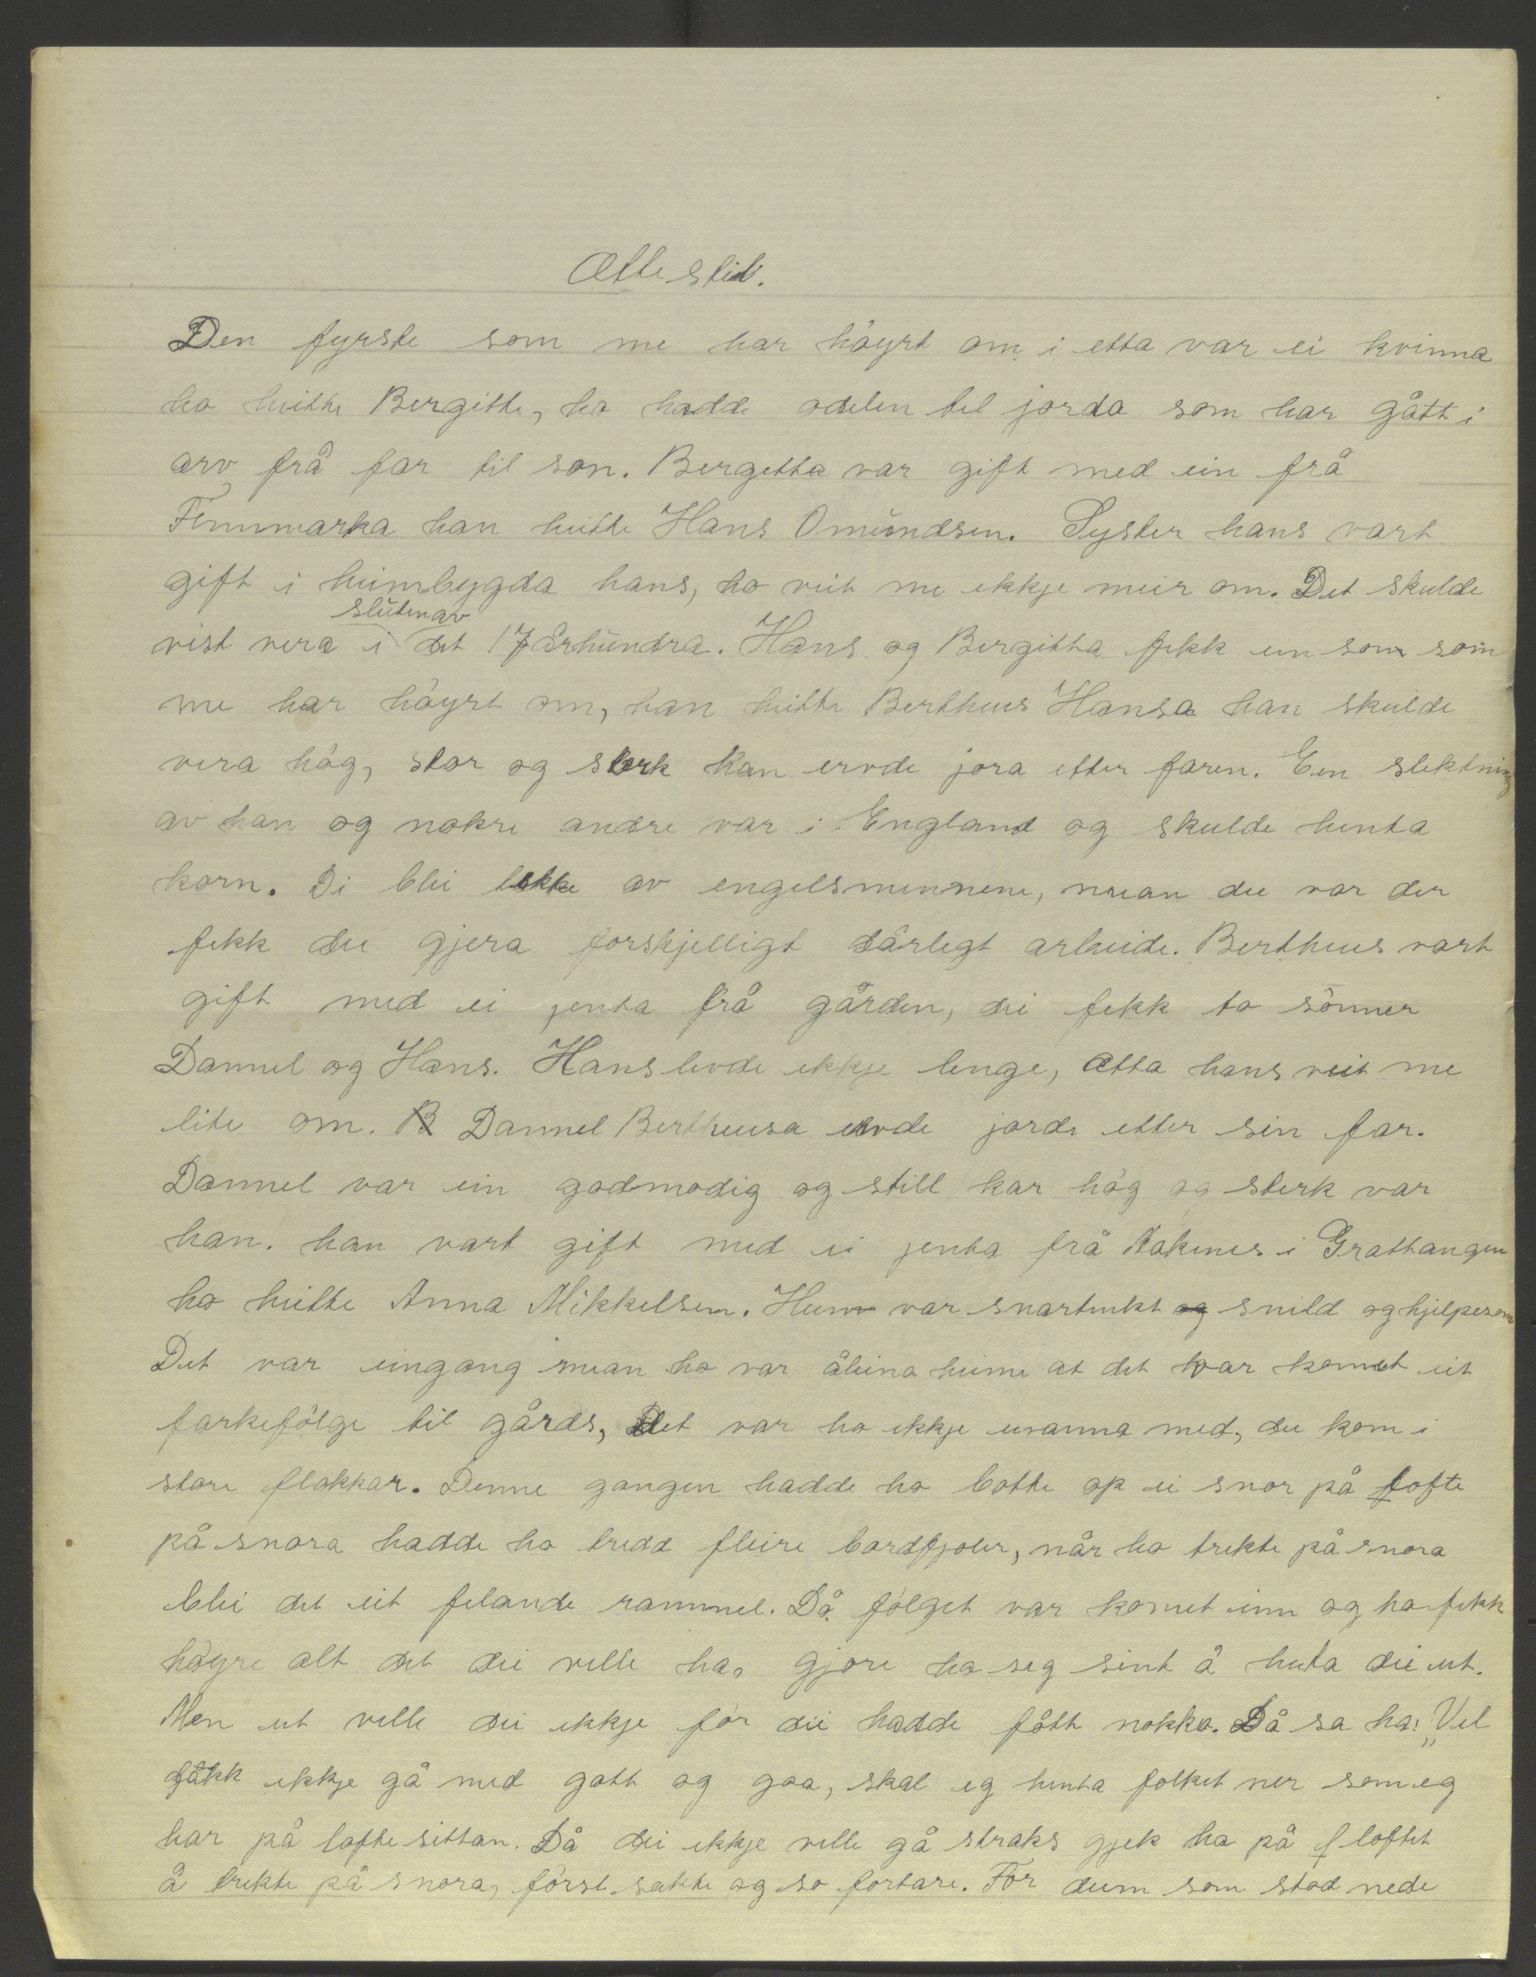 Ættestid.
Den fyrste som me har höyrt om i etta var ei kvinna
ho heitte Bergitte, ho hadde odelen tel jorda som har gått i
arv frå far til son. Bergetta var gift med ein frå
Finnmarka han heitte Hans Omundsen. Syster hans vart
gift i heimbygda hans, ho veit me ekkje meir om. Det skulde
sluten av
vist vera i det 17 århundra. Hans og Bergitta fekk ein son som
me har höyrt om, han heitte Bertheus Hansa han skulde
vera hög, stor og sterk han ervde jora etter faren. Ein slektning
av han og nokre andre var i England og skulde henta
korn. Di blei tekke av engelsmennene, meian dei var der
fekk dei gjera forskjelligt dårlegt arbeide. Bertheus vart
gift med ei jenta frå gården, dei fekk to sönner
Dannel og Hans. Hans levde ekkje lenge, ætta hans veit me
lite om. Dannel Bertheusa ervde jorda etter sin far.
Dannel var ein godmodig og still kar hög og sterk var
han. han vart gift med ei jenta frå Kakenes i Grattangen
ho heitte Anna Mikkelsen. Hun var snartenkt og snild og hjelpesom
Det var eingang meian ho var åleina heime at det var komet eit
farkefölge til gårds, Det var ho ekkje uvanna med, dei kom i
store flokkar. Denne gangen hadde ho botte op ei snor på lofte
på snora hadde ho tredd fleire bordfjoler, når ho trekte på snora
blei det eit felande rammel. Då fölget var komet inn og ho fekk
höyre alt det dei velle ha, gjore ho seg sint å huta dei ut.
Men ut velle dei ekkje för dei hadde fått nokko. Då sa ho: „Vel
ekkje gå med gott og goa, skal eg henta folket ner som eg
har på lofte sittan. Då dei ekkje velle gå straks gjek ho på loftet
å trekte på snora, först sakte og so fortare. For deim som stod nede